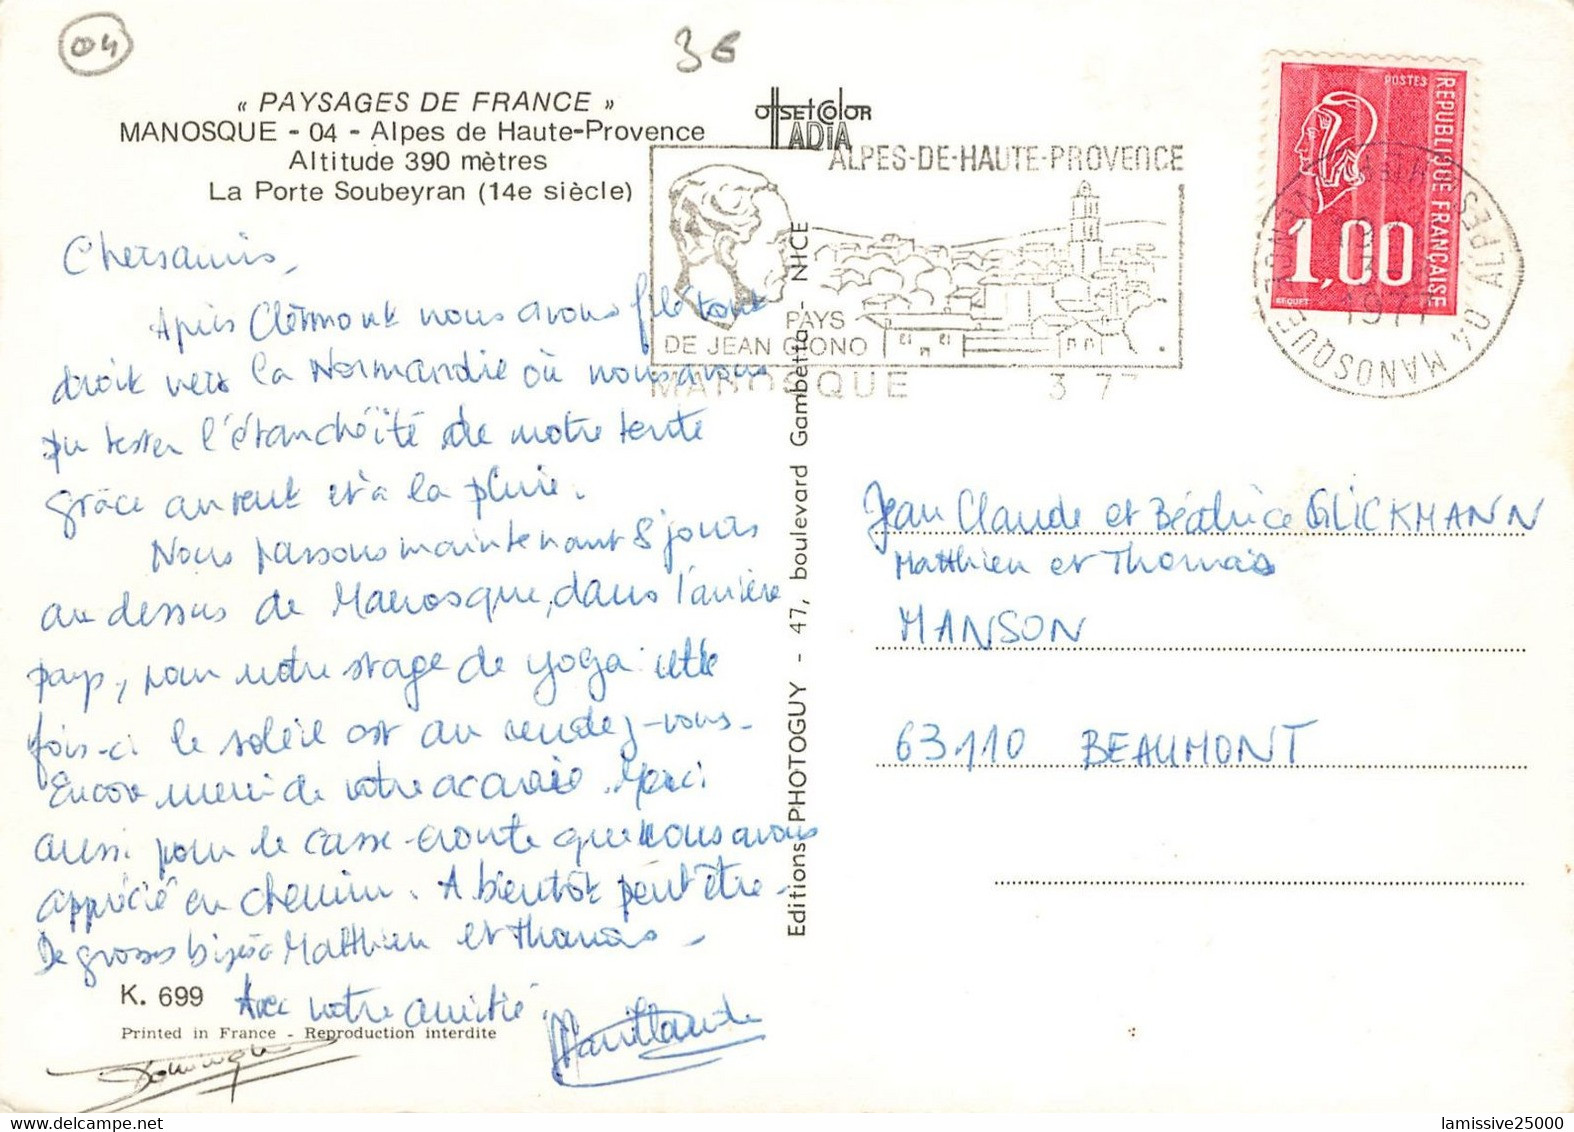 04
36
« PAYSAGES DE FRANCE »
MANOSQUE - 04 - Alpes de Haute-Provence
Altitude 390 mètres
La Porte Soubeyran (14e siècle)
OffsetColor
ADIA
ALPES-DE-HAUTE-PROVENCE
PAYS
DE JEAN GIONO
MANOSQUE
3 77
POSTES
REPUBLIQUE FRANÇAISE
1,00
BEQUET
04 MANOSQUE
ALPES
1977
Chers amis,
Après Clermont nous avons filé tout
droit vers la Normandie où nous avons
pu tester l'étanchéïté de notre tente
grâce au vent et à la pluie.
Nous passons maintenant 8 jours
au dessus de Manosque, dans l'arrière
pays, pour notre stage de yoga : cette
fois-ci le soleil est au rendez-vous.
Encore merci de votre accueil. Merci
aussi pour le casse-croute que nous avons
apprécié en chemin. A bientôt peut être -
De grosses bises à Matthieu et Thomas -
Avec notre amitié.
K. 699
Printed in France - Reproduction interdite
Editions PHOTOGUY - 47, boulevard Gambetta - NICE
Jean Claude et Béatrice GLICKMANN
Matthieu et Thomas
MANSON
63110 BEAUMONT
lamissive25000